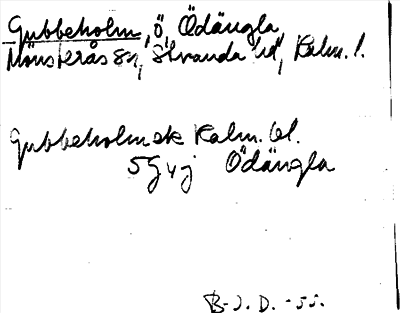 Gubbeholm, ö, Ödängla,
Mönsterås sn, Stranda hd, Kalm. l.
Gubbeholm ek Kalm. bl.
5G4j Ödängla
B-J. D. -55.